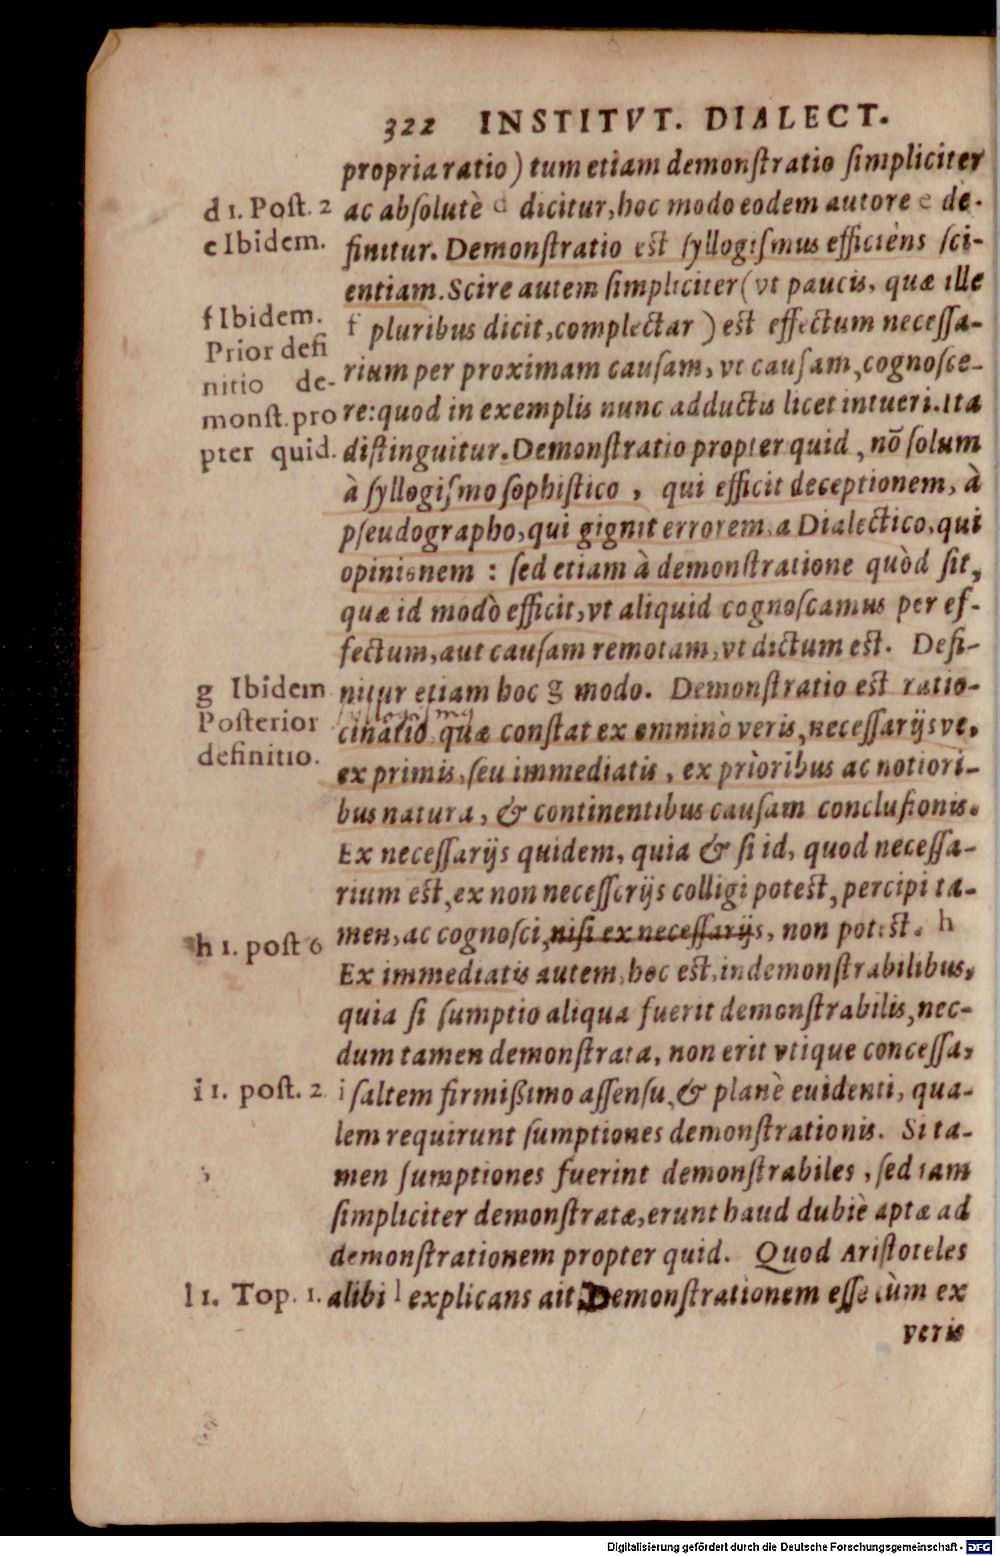 322 INSTITVT. DIALECT.
propria ratio) tum etiam demonſtratio ſimpliciter
d 1. Poſt. 2 ac abſolutè d dicitur, hoc modo eodem autore e de-
e Ibidem. finitur. Demonſtratio est ſyllogiſmus efficiẽns ſci-
entiam. Scire autem ſimpliciter (vt paucis, quæ ille
f Ibidem. f pluribus dicit, complectar) est effectum neceſſa-
Prior defi
nitio de- rium per proximam cauſam, vt cauſam, cognoſce-
monſt. pro re: quod in exemplis nunc adductis licet intueri. Ita
pter quid. diſtinguitur. Demonſtratio propter quid, nõ ſolum
à ſyllogiſmo ſophiſtico, qui efficit deceptionem, à
pſeudographo, qui gignit errorem, a Dialectico, qui
opinionem: ſed etiam à demonſtratione quòd ſit,
quæ id modò efficit, vt aliquid cognoſcamus per ef-
fectum, aut cauſam remotam, vt dictum est. Defi-
g Ibidem nitur etiam hoc g modo. Demonſtratio est ratio-
ſyllogiſmq
Poſterior cinatio quæ conſtat ex omninò veris, neceſſarijsve,
definitio. ex primis, ſeu immediatis, ex prioribus ac notiori-
bus natura, & continentibus cauſam concluſionis.
Ex neceſſarijs quidem, quia & ſi id, quod neceſſa-
rium est, ex non neceſſarijs colligi potest, percipi ta-
h 1. post 6 men, ac cognoſci, niſi ex neceſſarijs, non potest. h
Ex immediatis autem, hoc est, indemonſtrabilibus,
quia ſi ſumptio aliqua fuerit demonſtrabilis, nec-
dum tamen demonſtrata, non erit vtique conceſſa,
i 1. post. 2 i ſaltem firmißimo aſſenſu, & planè euidenti, qua-
lem requirunt ſumptiones demonſtrationis. Si ta-
men ſumptiones fuerint demonſtrabiles, ſed iam
ſimpliciter demonſtratæ, erunt haud dubiè aptæ ad
demonſtrationem propter quid. Quod Ariſtoteles
l 1. Top. 1. alibi l explicans ait, Demonſtrationem eſſe cùm ex
veris
Digitalisierung gefördert durch die Deutsche Forschungsgemeinschaft - DFG